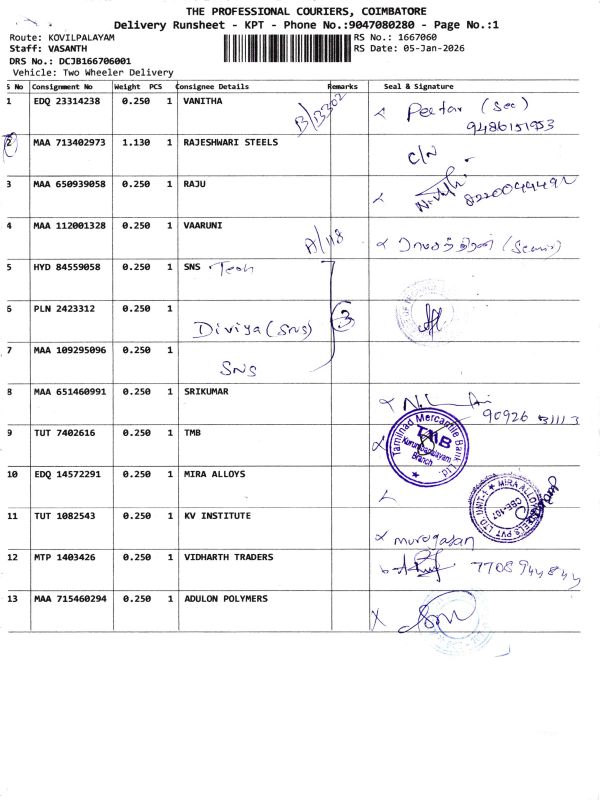 THE PROFESSIONAL COURIERS, COIMBATORE
Delivery Runsheet - KPT - Phone No.:9047080280 - Page No.:1
Route: KOVILPALAYAM RS No.: 1667060
Staff: VASANTH RS Date: 05-Jan-2026
DRS No.: DCJB166706001
Vehicle: Two Wheeler Delivery
S No Consignment No Weight PCS Consignee Details Remarks Seal & Signature
1 EDQ 23314238 0.250 1 VANITHA B/B302 Peetar (Sec)
9486151953
2 MAA 713402973 1.130 1 RAJESHWARI STEELS C/N
3 MAA 650939058 0.250 1 RAJU 8220044491
4 MAA 112001328 0.250 1 VAARUNI A/118 (Secur)
5 HYD 84559058 0.250 1 SNS Tech
6 PLN 2423312 0.250 1 Diviya (SNS) 3
7 MAA 109295096 0.250 1 SNS
8 MAA 651460991 0.250 1 SRIKUMAR 90926 31113
9 TUT 7402616 0.250 1 TMB Tamilnad Mercantile Bank Ltd. TMB Kurumbapalayam Branch
10 EDQ 14572291 0.250 1 MIRA ALLOYS MIRA ALLOY STEELS PVT LTD UNIT-1 CBE-107
11 TUT 1082543 0.250 1 KV INSTITUTE murugasan
12 MTP 1403426 0.250 1 VIDHARTH TRADERS 7708944844
13 MAA 715460294 0.250 1 ADULON POLYMERS